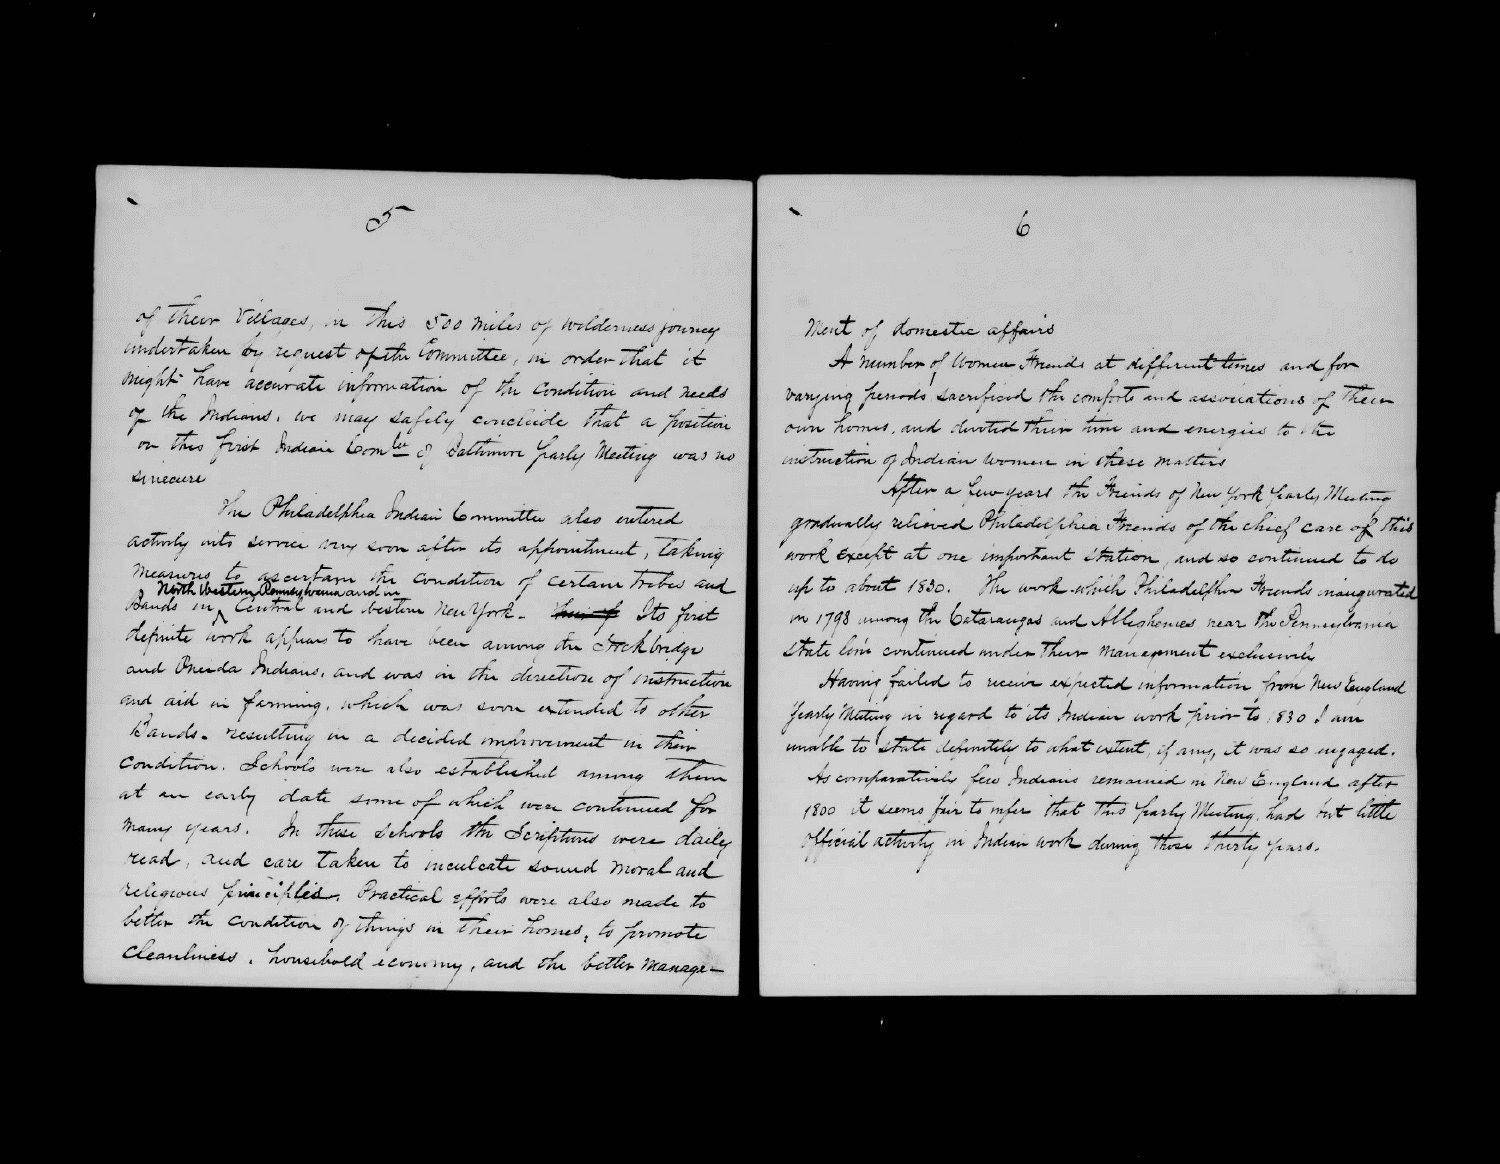 5
of their Villages, in this 500 miles of wilderness journey
undertaken by request of the Committee, in order that it
might have accurate information of the condition and needs
of the Indians, we may safely conclude that a position
on this first Indian Comtee of Baltimore Yearly Meeting was no
sinecure
The Philadelphia Indian Committee also entered
actively into service very soon after its appointment, taking
measures to ascertain the condition of certain tribes and
North Western Pennsylvania and in
Bands in Central and western New York. Its first
definite work appears to have been among the Stockbridge
and Oneida Indians, and was in the direction of instruction
and aid in farming, which was soon extended to other
Bands. resulting in a decided improvement in their
condition. Schools were also established among them
at an early date some of which were continued for
many years. In these schools the Scriptures were daily
read, and care taken to inculcate sound moral and
religious principles. Practical efforts were also made to
better the condition of things in their homes, to promote
cleanliness, household economy, and the better manage-
6
ment of domestic affairs
A number of Women Friends at different times and for
varying periods, sacrificed the comforts and associations of their
own homes, and devoted their time and energies to the
instruction of Indian women in these matters
After a few years the Friends of New York Yearly Meeting
gradually relieved Philadelphia Friends of the chief care of this
work except at one important station, and so continued to do
up to about 1830. The work which Philadelphia Friends inaugurated
in 1798 among the Cataraugas and Alleghenies near the Pennsylvania
state line continued under their management exclusively
Having failed to receive expected information from New England
Yearly Meeting in regard to its Indian work prior to 1830 I am
unable to state definitely to what extent, if any, it was so engaged.
As comparatively few Indians remained in New England after
1800 it seems fair to infer that this Yearly Meeting, had but little
official activity in Indian work during those thirty years.